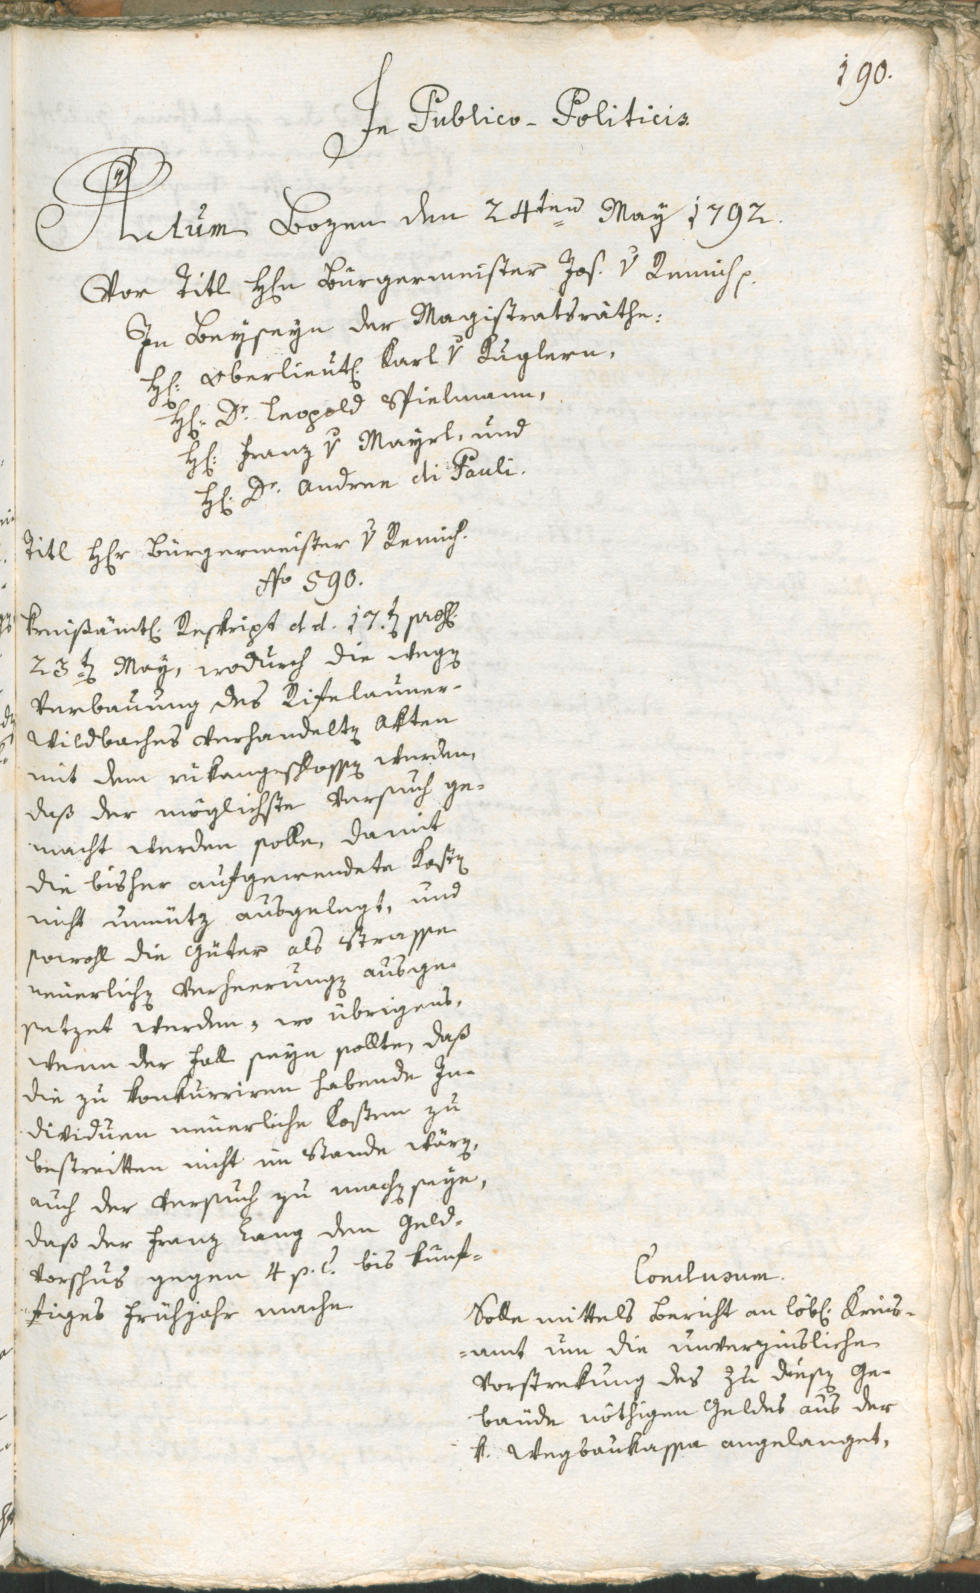 190.
In Publico-Politicis
Actum Bozen den 24ten May 1792.
Vor Titl Hhn Bürgermeister Jos. v Remich p.
In Beyseyn der Magistratsräthe:
H: Oberlieut. Karl v Kuglern,
H: Dr. Leopold Spielmann,
H: Franz v Mayrl, und
H. Dr. Andree di Pauli.
Titl Hhr Bürgermeister v Remich.
No 590.
Kreißämtl. Reskript dd. 17.t praes.
23t May, wodurch die wegen
Verbauung des Rifelauner-
Wildbaches verhandelten Akten
mit dem rükangeschlossen werden,
daß der möglichste Versuch ge-
macht werden solle, damit
die bisher aufgewendete Kosten
nicht unnütz ausgelegt, und
sowohl die Güter als Strasse
neuerlichen Verheerungen ausge-
setzet werden, wo übrigens,
wenn der Fall seyn sollte, daß
die zu konkurriren habende In-
dividuen neuerliche Kosten zu
bestreitten nicht im Stande wären,
auch der Versuch zu machen seye,
daß der Franz Lang den Geld-
vorschus gegen 4 p. C. bis künf-
tiges Frühjahr mache
Conclusum.
Solle mittels Bericht an löbl. Kreis-
-amt um die unverzinsliche
Vorstrekung des zu diesen Ge-
bäude nöthigen Geldes aus der
k. Wegbaukassa angelanget,